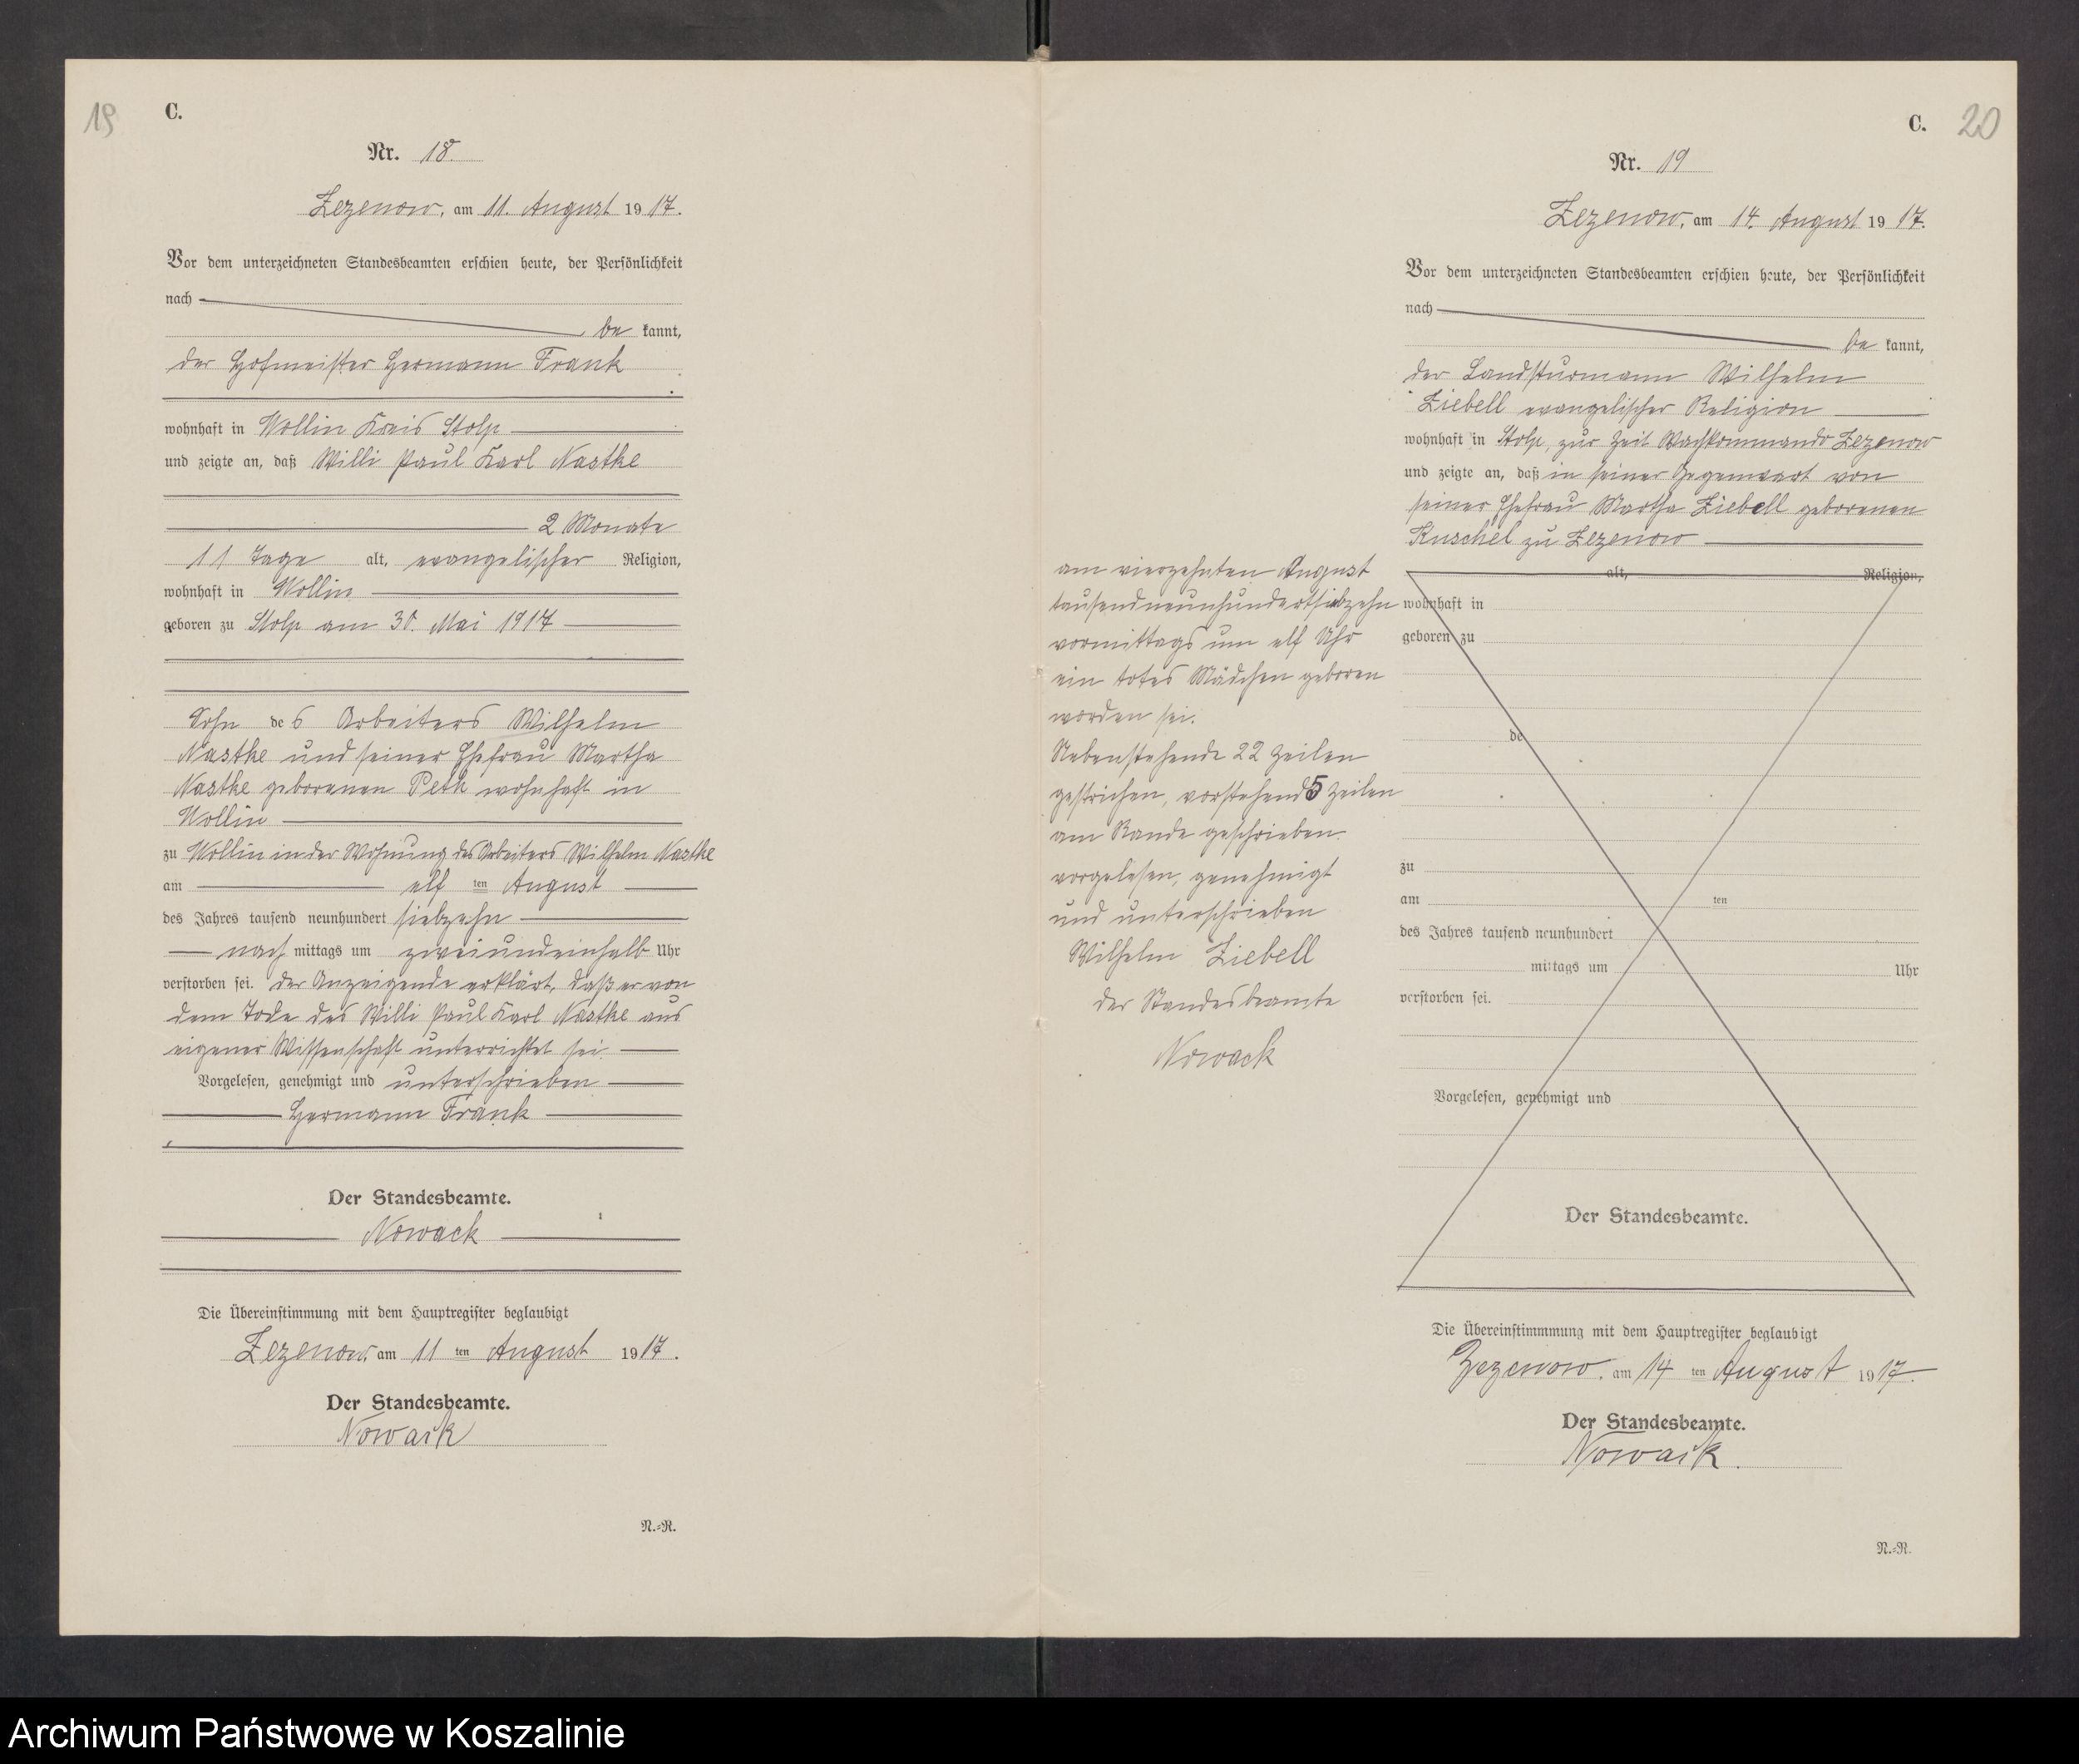 19
C.
Nr. 18.
Zezenow, am 11. August 1917.
Vor dem unterzeichneten Standesbeamten erschien heute, der Persönlichkeit
nach
be kannt,
der Hofmeister Hermann Frank
wohnhaft in Wollin Kreis Stolp
und zeigte an, daß Willi Paul Karl Nastke
2 Monate
11 Tage alt, evangelischer Religion,
wohnhaft in Wollin
geboren zu Stolp am 30. Mai 1917
Sohn des Arbeiters Wilhelm
Nastke und seiner Ehefrau Martha
Nastke geborenen Peth wohnhaft in
Wollin
zu Wollin in der Wohnung des Arbeiters Wilhelm Nastke
am elf ten August
des Jahres tausend neunhundert siebzehn
nach mittags um zweiundeinhalb Uhr
verstorben sei. Der Anzeigende erklärt, daß er von
dem Tode des Willi Paul Karl Nastke aus
eigener Wissenschaft unterrichtet sei.
Vorgelesen, genehmigt und unterschrieben
Hermann Frank
Der Standesbeamte.
Nowack
Die Übereinstimmung mit dem Hauptregister beglaubigt
Zezenow, am 11 ten August 1917.
Der Standesbeamte.
Nowack
N.=R.
C. 20
Nr. 19
Zezenow, am 14. August 1917.
Vor dem unterzeichneten Standesbeamten erschien heute, der Persönlichkeit
nach
be kannt,
der Landsturmann Wilhelm
Ziebell evangelischer Religion
wohnhaft in Stolp, zur Zeit Wachkommando Zezenow
und zeigte an, daß in seiner Gegenwart von
seiner Ehefrau Martha Ziebell geborenen
Kuschel zu Zezenow
am vierzehnten August
tausendneunhundertsiebzehn
vormittags um elf Uhr
ein totes Mädchen geboren
worden sei.
Nebenstehende 22 Zeilen
gestrichen, vorstehend 5 Zeilen
am Rande geschrieben
vorgelesen, genehmigt
und unterschrieben
Wilhelm Ziebell
Der Standesbeamte
Nowack
alt, Religion,
wohnhaft in
geboren zu
de
zu
am ten
des Jahres tausend neunhundert
mittags um Uhr
verstorben sei.
Vorgelesen, genehmigt und
Der Standesbeamte.
Die Übereinstimmmung mit dem Hauptregister beglaubigt
Zezenow, am 14 ten August 1917.
Der Standesbeamte.
Nowack.
N.=R.
Archiwum Państwowe w Koszalinie